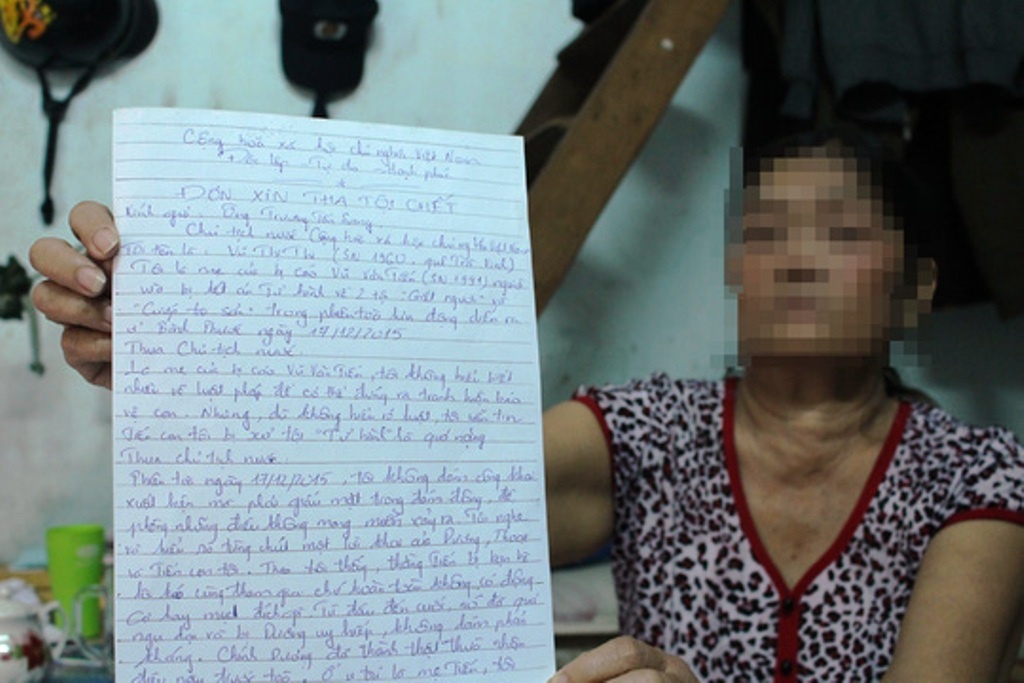 Cộng hoà xã hội chủ nghĩa Việt Nam
Độc lập Tự do Hạnh phúc
ĐƠN XIN THA TỘI CHẾT
Kính gửi: Ông Trương Tấn Sang
Chủ tịch nước Cộng hoà xã hội chủ nghĩa Việt Nam
Tôi tên là: Vũ Thị Thi (SN 1960, quê Trà Vinh)
Tôi là mẹ của bị cáo Vũ Văn Tiến (SN 1991) người
vừa bị kết án Tử hình về 2 tội "Giết người" và
"Cướp tài sản" trong phiên toà lưu động diễn ra
ở Bình Phước ngày 17/12/2015
Thưa Chủ tịch nước.
Là mẹ của bị cáo Vũ Văn Tiến, tôi không hiểu biết
nhiều về luật pháp để có thể đứng ra tranh luận bảo
vệ con. Nhưng, dù không hiểu rõ luật, tôi vẫn tin
Tiến con tôi bị xử tội "Tử hình" là quá nặng
Thưa chủ tịch nước.
Phiên toà ngày 17/12/2015, tôi không dám công khai
xuất hiện mà phải giấu mặt trong đám đông, để
phòng những điều không may mắn xảy ra. Tôi nghe
và hiểu rõ từng chút một lời khai của Dương, Thoại
và Tiến con tôi. Theo tôi thấy, thằng Tiến bị
tham gia chứ hoàn toàn không có động
cơ hay mục đích gì. Từ đầu đến cuối, nó đã quá
ngu dại và bị Dương uy hiếp, không dám phản
kháng. Chính Dương đã thành thật thừa nhận
điều này trước toà. Ở vị trí là mẹ Tiến, tôi